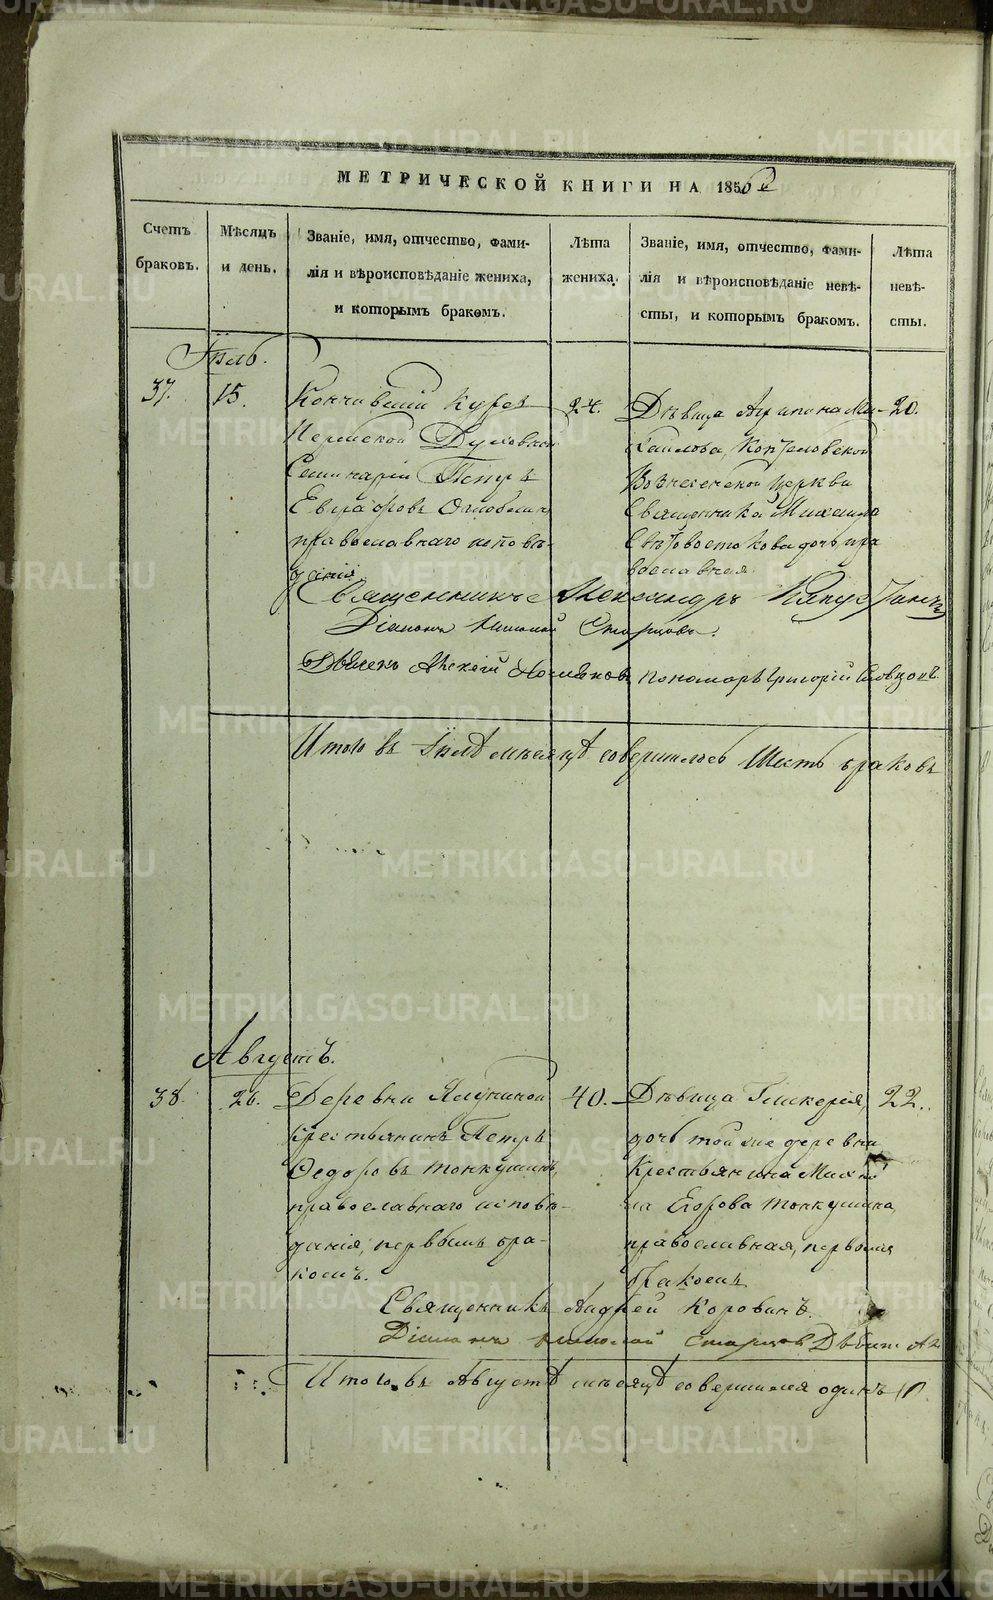 МЕТРИЧЕСКОЙ КНИГИ НА 185
Счетъ браковъ.
Мѣсяцъ и день.
Званіе, имя, отчество, фами-
лія и вѣроисповѣданіе жениха,
и которымъ бракомъ.
Лѣта
жениха.
Званіе, имя, отчество, фами-
лія и вѣроисповѣданіе невѣ-
сты, и которымъ бракомъ.
Лѣта
невѣ-
сты.
Іюль.
37.
15.
Кончившій курсъ
Пермской Духовной
Семинаріи Петръ
Евграфовъ
православнаго исповѣ-
данія.
24.
Дѣвица Агрипина Ми-
хайлова,
Вознесенской церкви
Священника Михаила
дочь пра
вославная
20.
Священникъ Александръ
Діаконъ Николай Старцовъ.
Дьячекъ Алексій пономарь Григорій Словцовъ
Итого въ Іюлѣ мѣсяцѣ совершилось Шесть браковъ
Августъ.
38.
26.
Деревни Ялуниной
крестьянинъ Петръ
Ѳедоровъ Топкушинъ,
православнаго исповѣ-
данія, первымъ бра-
комъ.
40.
Дѣвица Гликерія,
дочь той же деревни
Крестьянина
Егорова Топкушина,
православная, первымъ
бракомъ
22.
Священникъ Андрей Коровинъ.
Діаконъ Николай Старцов
Итого въ Августѣ мѣсяцѣ совершился одинъ
METRIKI.GASO-URAL.RU